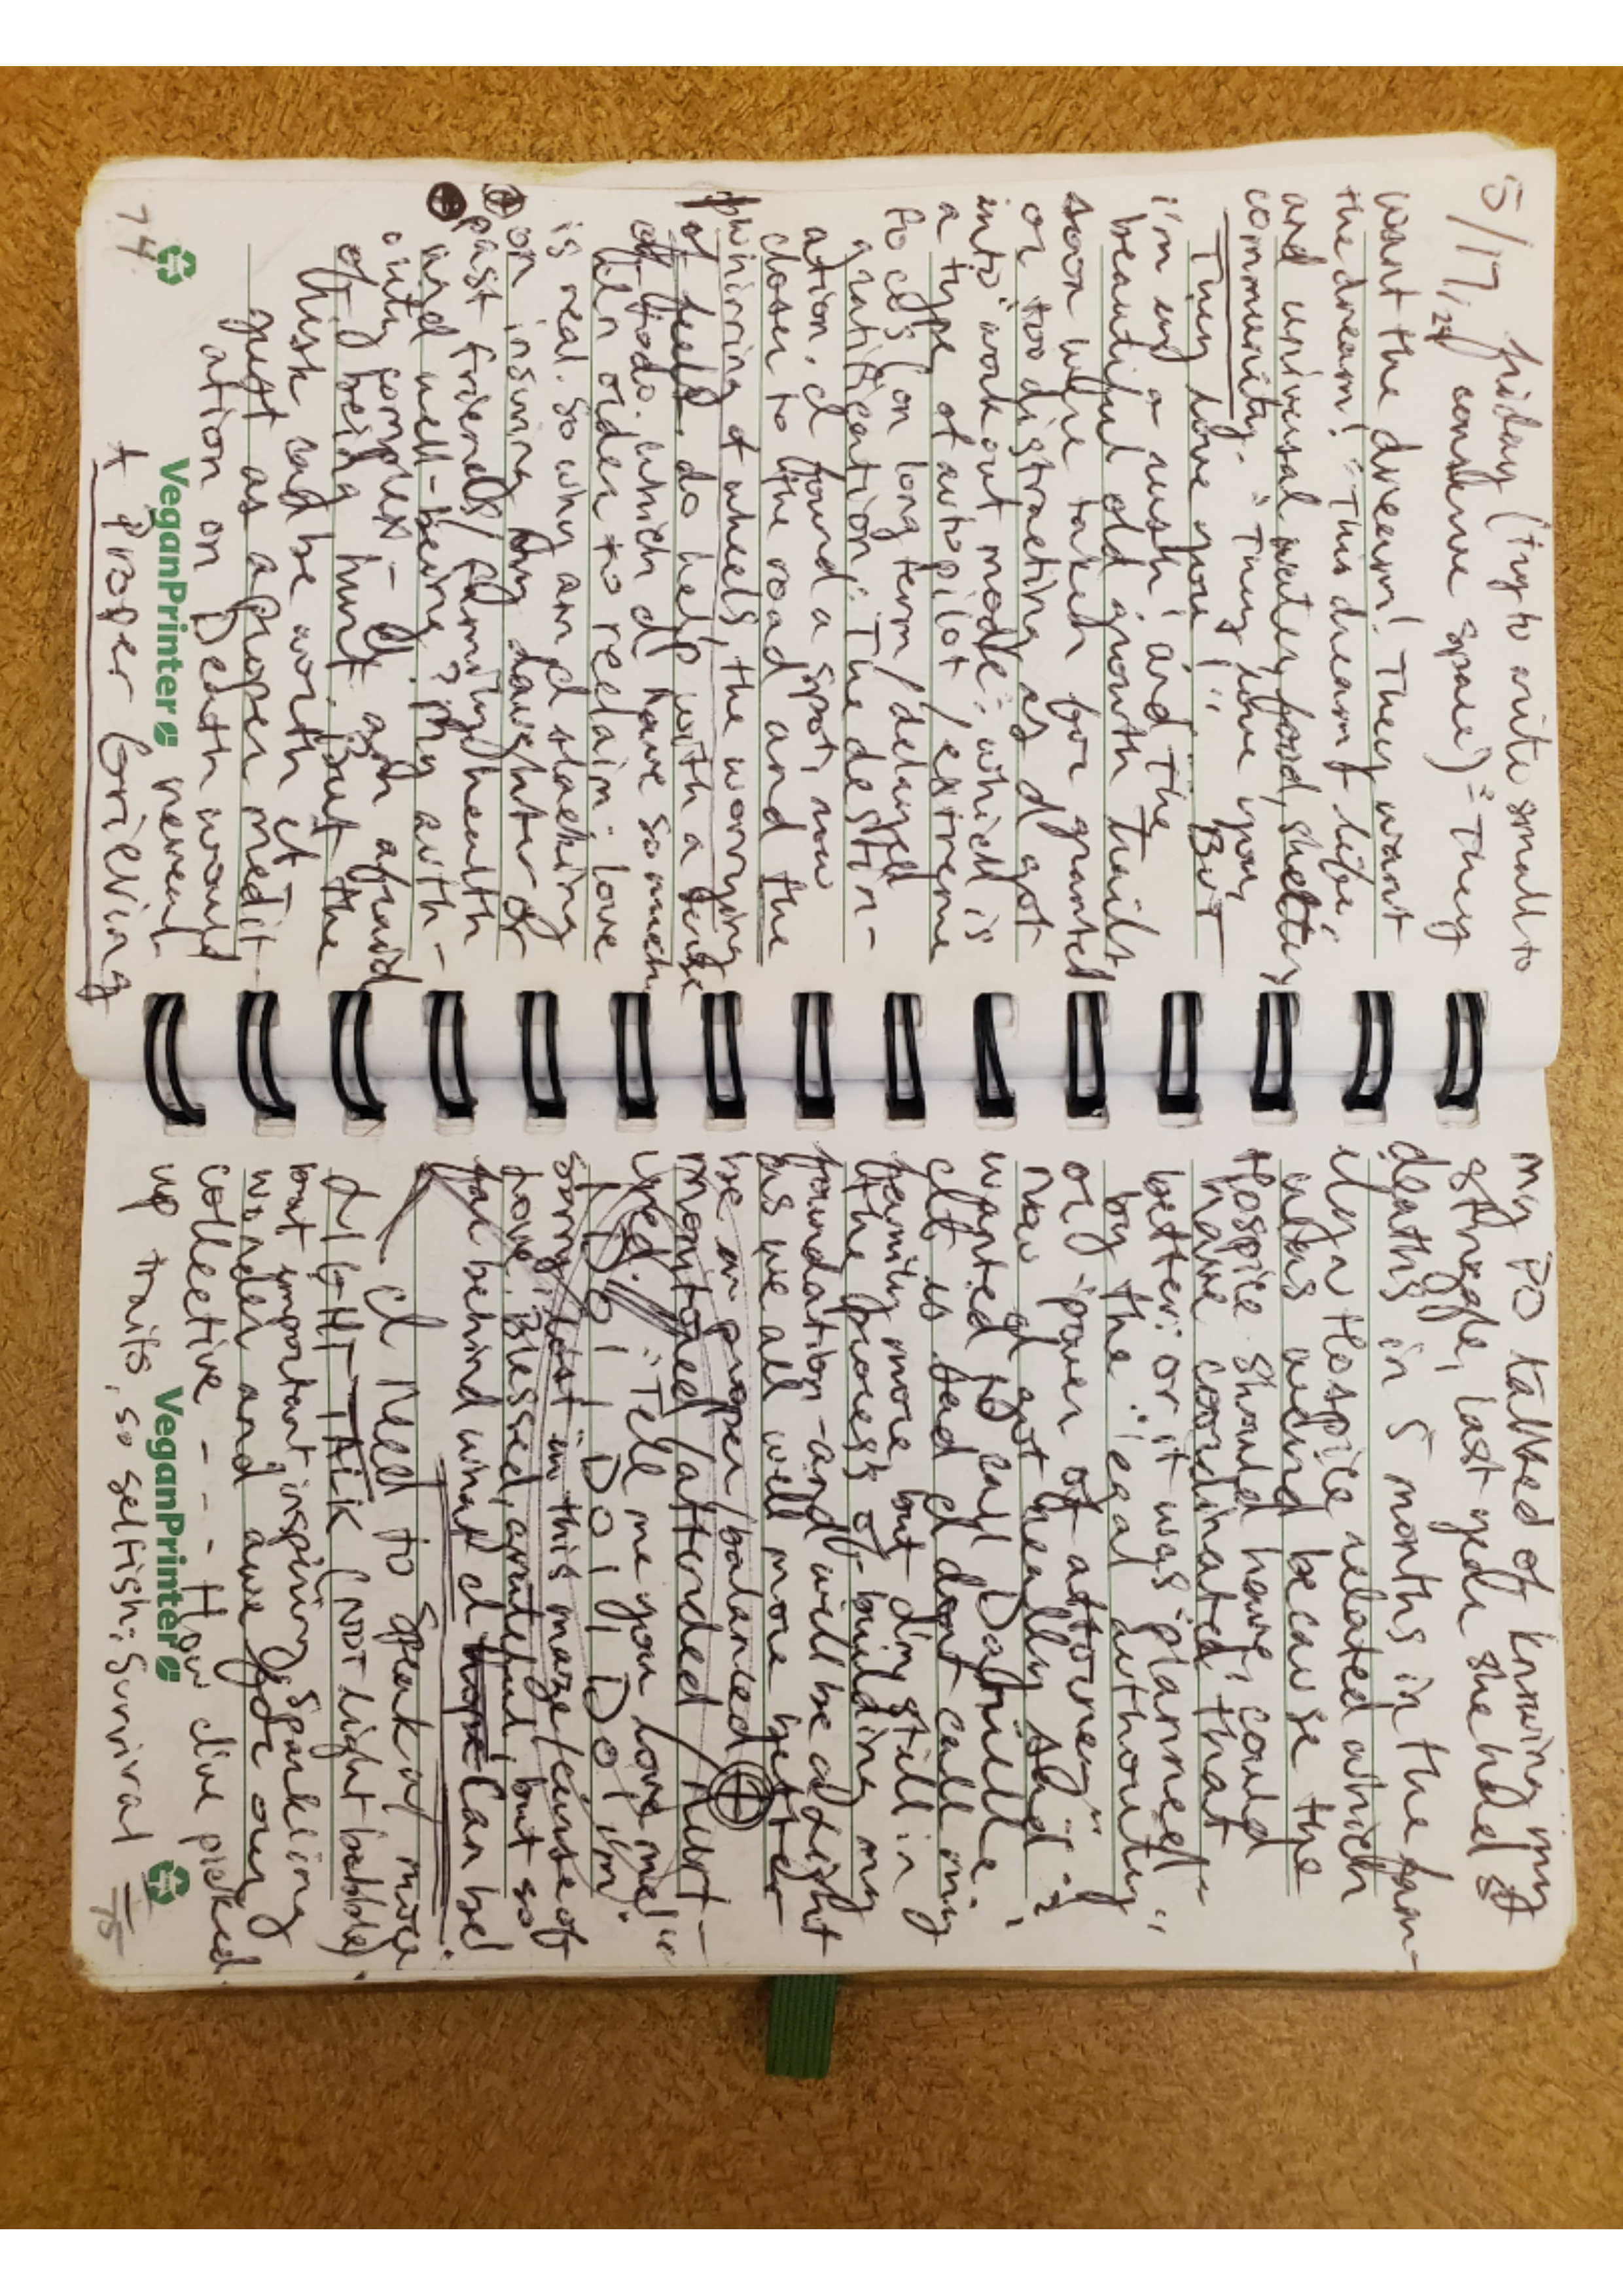 5/17/24 friday (try to write small to
conserve space) "They
want the dream! They want
the dream!" This dream of life
and universal water, food, shelter,
community. "They love you,
They love you!". BUT
i'm in a rush! and the
beautiful old growth trails
soon were taken for granted
or too distracting as I got
into "work out mode", which is
a type of autopilot/extreme
focus (on long term/delayed
gratification: The destin-
ation. I found a spot now
closer to the road and the
whirring of wheels, the worrying
of feels. do help with a sense
of foodo. which I have so much
in order to reclaim. love
is real. so why am I slacking
on insuring my daughter or
past friends/family health
and well-being? My auth-
ority complex - I am afraid
of being hurt. But the
risk can be worth it
just as a proper medit-
ation on Death would
reveal
A Proper Grieving
74
VeganPrinter
my PO talked of knowing my
struggle, last year she had 8
deaths in 5 months in the fam-
ily ~ Hospice related which
was weird because the
Hospice should have, could
have coordinated that
better: or it was "planned"
by the "legal authority"
or "power of attorney".
now I got really sad:
wanted to call Danielle.
clt is sad I dont call my
family more, but i'm still in
the process of building my
foundation - and will be alright
as we all well more better
be in proper/balanced
monitored/attended/nurt-
ured. "Tell me you love me!"
I DO! I DO! I DO! i'm
sorry, lost in this maze/curse of
love. Blessed, grateful, but so
far behind what I hope can be!
I need to speak of more
LIGHT-TALK (NOT light babble)
but important inspiring sparkling
wonder and awe for our
collective - - - How I've picked
up traits, so selfish: Survival
VeganPrinter
75